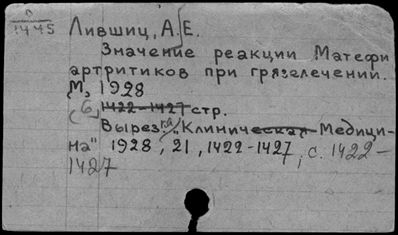 Л
1445
Лившиц, А. Е.
Значение реакции Матефи
артритиков при грязелечении.
М, 1928
(6) 1422-1427 стр.
Вырез. из "Клиническая Медици-
на" 1928, 21, 1422-1427, с. 1422-
1427